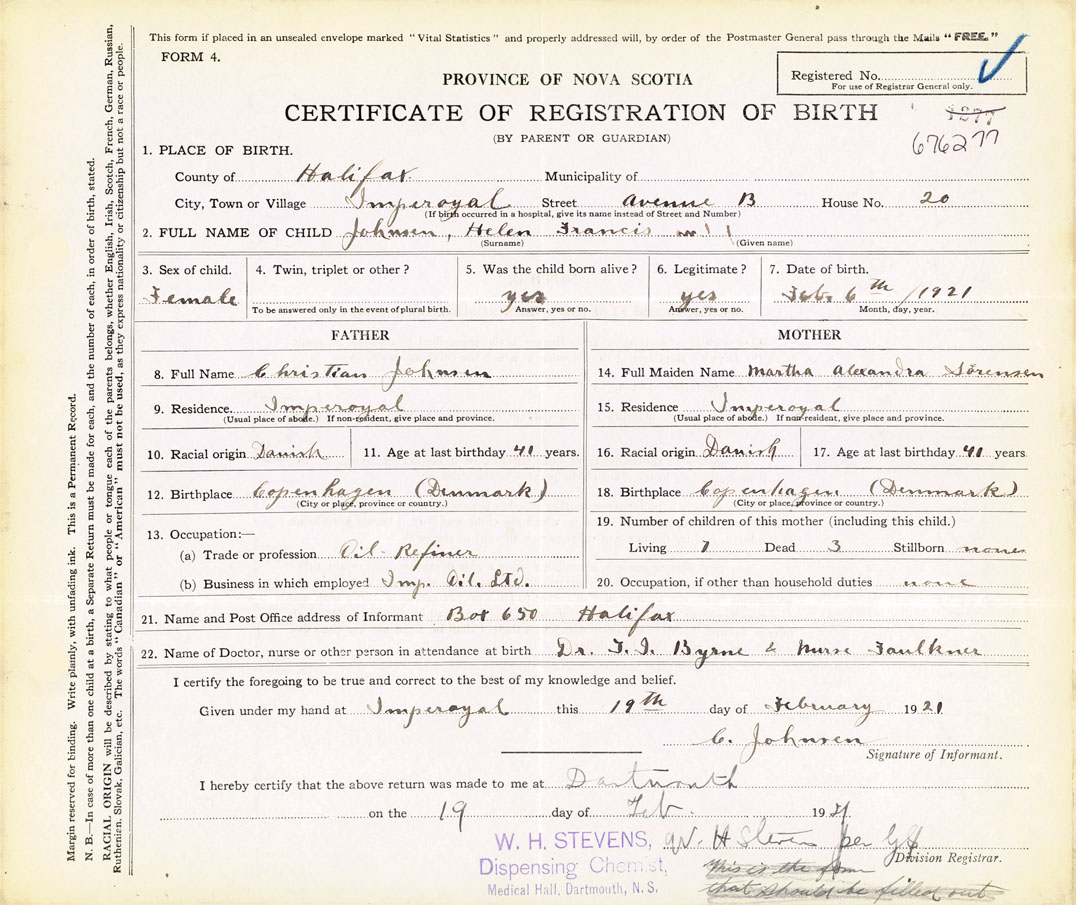 This form if placed in an unsealed envelope marked "Vital Statistics" and properly addressed will, by order of the Postmaster General pass through the Mails "FREE."
FORM 4.
Registered No.
For use of Registrar General only.
PROVINCE OF NOVA SCOTIA
CERTIFICATE OF REGISTRATION OF BIRTH
(BY PARENT OR GUARDIAN)
1877
676277
1. PLACE OF BIRTH.
County of Halifax Municipality of
City, Town or Village Imperoyal Street Avenue B House No. 20
(If birth occurred in a hospital, give its name instead of Street and Number)
2. FULL NAME OF CHILD Johnsen, Helen Francis
(Surname) (Given name)
3. Sex of child. 4. Twin, triplet or other? 5. Was the child born alive? 6. Legitimate? 7. Date of birth.
Female yes yes Feb. 6th / 1921
To be answered only in the event of plural birth. Answer, yes or no. Answer, yes or no. Month, day, year.
FATHER
8. Full Name Christian Johnsen
9. Residence. Imperoyal
(Usual place of abode.) If non-resident, give place and province.
10. Racial origin Danish 11. Age at last birthday 41 years.
12. Birthplace Copenhagen (Denmark)
(City or place, province or country.)
13. Occupation:—
(a) Trade or profession Oil-Refiner
(b) Business in which employed Imp. Oil. Ltd.
MOTHER
14. Full Maiden Name Martha Alexandra Sorensen
15. Residence Imperoyal
(Usual place of abode.) If non-resident, give place and province.
16. Racial origin Danish 17. Age at last birthday 41 years
18. Birthplace Copenhagen. (Denmark)
(City or place, province or country.)
19. Number of children of this mother (including this child.)
Living 7 Dead 3 Stillborn none
20. Occupation, if other than household duties none
21. Name and Post Office address of Informant Box 650 Halifax
22. Name of Doctor, nurse or other person in attendance at birth Dr. F. I. Byrne & Nurse Faulkner
I certify the foregoing to be true and correct to the best of my knowledge and belief.
Given under my hand at Imperoyal this 19th day of February 1921
C. Johnsen
Signature of Informant.
I hereby certify that the above return was made to me at Dartmouth
on the 19 day of Feb 1921
W. H. STEVENS, W H Stevens per
Dispensing Chemist, Division Registrar.
Medical Hall, Dartmouth, N. S.
This is the form
that should be filled out
Margin reserved for binding. Write plainly, with unfading ink. This is a Permanent Record.
N. B.—In case of more than one child at a birth, a Separate Return must be made for each, and the number of each, in order of birth, stated.
RACIAL ORIGIN will be described by stating to what people or tongue each of the parents belongs, whether English, Irish, Scotch, French, German, Russian,
Ruthenien, Slovak, Galician, etc. The words "Canadian" or "American" must not be used, as they express nationality or citizenship but not a race or people.